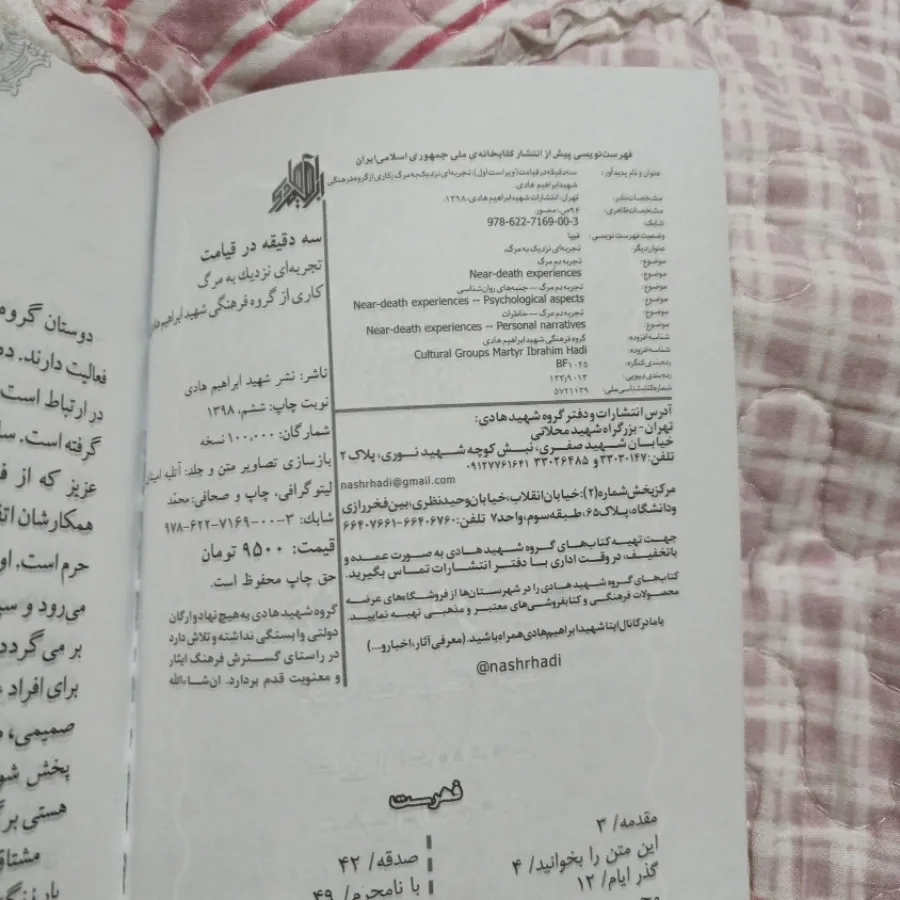 فهرست‌نویسی پیش از انتشار کتابخانه‌ی ملی جمهوری اسلامی ایران
عنوان و نام پدیدآور: سه دقیقه در قیامت (ویراست اول): تجربه‌ای نزدیک به مرگ، کاری از گروه فرهنگی
شهید ابراهیم هادی.
مشخصات نشر: تهران، انتشارات شهید ابراهیم هادی، ۱۳۹۸.
مشخصات ظاهری: ۹۶ص. مصور.
شابک: 978-622-7169-00-3
وضعیت فهرست نویسی: فیپا
عنوان دیگر: تجربه‌ای نزدیک به مرگ.
موضوع: تجربه دم مرگ
موضوع: Near-death experiences
موضوع: تجربه دم مرگ -- جنبه‌های روان‌شناسی
موضوع: Near-death experiences -- Psychological aspects
موضوع: تجربه دم مرگ -- خاطرات
موضوع: Near-death experiences -- Personal narratives
شناسه افزوده: گروه فرهنگی شهید ابراهیم هادی
شناسه افزوده: Cultural Groups Martyr Ibrahim Hadi
رده‌بندی کنگره: BF۱۰۴۵
رده‌بندی دیویی: ۱۳۳/۹۰۱۳
شماره کتابشناسی ملی: ۵۷۲۱۱۳۹
آدرس انتشارات و دفتر گروه شهید هادی:
تهران - بزرگراه شهید محلاتی
خیابان شهید صفری، نبش کوچه شهید نوری، پلاک ۲
تلفن: ۳۳۰۳۰۱۴۷ و ۳۳۰۲۶۴۸۵ ۰۹۱۲۷۷۶۱۶۴۱
nashrhadi@gmail.com
مرکز پخش شماره (۲): خیابان انقلاب، خیابان وحید نظری، بین فخر رازی
و دانشگاه، پلاک ۶۵، طبقه سوم، واحد ۷ تلفن: ۶۶۴۰۶۷۶۰-۶۶۴۰۷۶۶۱
جهت تهیه کتاب‌های گروه شهید هادی به صورت عمده و
با تخفیف، در وقت اداری با دفتر انتشارات تماس بگیرید.
کتاب‌های گروه شهید هادی را در شهرستان‌ها از فروشگاه‌های عرضه
محصولات فرهنگی و کتابفروشی‌های معتبر و مذهبی تهیه نمایید.
با ما در کانال ایتا شهید ابراهیم هادی همراه باشید. (معرفی آثار، اخبار و...)
@nashrhadi
ابراهیم هادی
سه دقیقه در قیامت
تجربه‌ای نزدیك به مرگ
کاری از گروه فرهنگی شهید ابراهیم هادی
ناشر: نشر شهید ابراهیم هادی
نوبت چاپ: ششم، ۱۳۹۸
شمارگان: ۱۰۰,۰۰۰ نسخه
بازسازی تصاویر متن و جلد: آتلیه
لیتوگرافی، چاپ و صحافی: محمّد
شابك: ۳-۰۰-۷۱۶۹-۶۲۲-۹۷۸
قیمت: ۹۵۰۰ تومان
حق چاپ محفوظ است.
گروه شهید هادی به هیچ نهاد و ارگان
دولتی وابستگی نداشته و تلاش دارد
در راستای گسترش فرهنگ ایثار
و معنویت قدم بردارد. ان‌شاءالله
فهرست
مقدمه/ ۳
این متن را بخوانید/ ۴
گذر ایام/ ۱۲
صدقه/ ۴۲
با نامحرم/ ۴۹
دوستان گروه
فعالیت دارند.
در ارتباط است
گرفته است.
عزیز که از
همکارشان
حرم است. او
می‌رود و
بر می‌گردد
برای افراد
صمیمی،
پخش
هستی